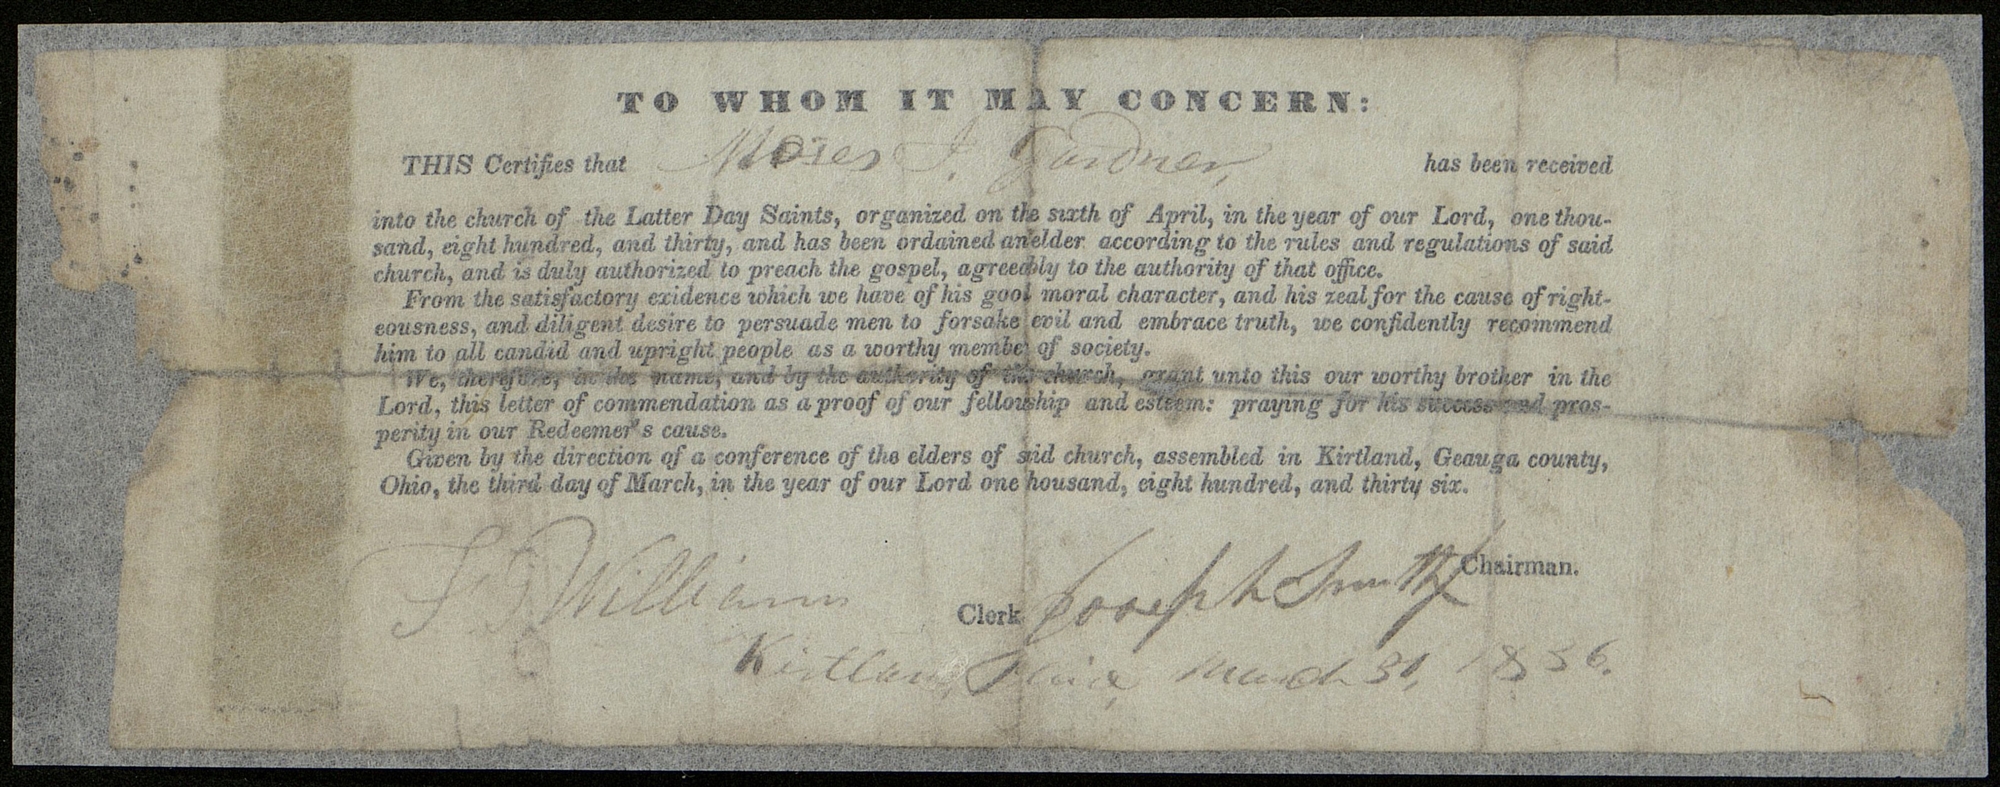 TO WHOM IT MAY CONCERN:
THIS Certifies that Moses I. Gardner, has been received
into the church of the Latter Day Saints, organized on the sixth of April, in the year of our Lord, one thou-
sand, eight hundred, and thirty, and has been ordained an elder according to the rules and regulations of said
church, and is duly authorized to preach the gospel, agreeably to the authority of that office.
From the satisfactory exidence which we have of his good moral character, and his zeal for the cause of right-
eousness, and diligent desire to persuade men to forsake evil and embrace truth, we confidently recommend
him to all candid and upright people as a worthy membe of society.
We, therefore, in the name, and by the authority of this church, grant unto this our worthy brother in the
Lord, this letter of commendation as a proof of our fellowship and esteem: praying for his success and pros-
perity in our Redeemer's cause.
Given by the direction of a conference of the elders of said church, assembled in Kirtland, Geauga county,
Ohio, the third day of March, in the year of our Lord one housand, eight hundred, and thirty six.
Joseph Smith Chairman.
F G Williams Clerk
Kirtland, Ohio, March 30, 1836.